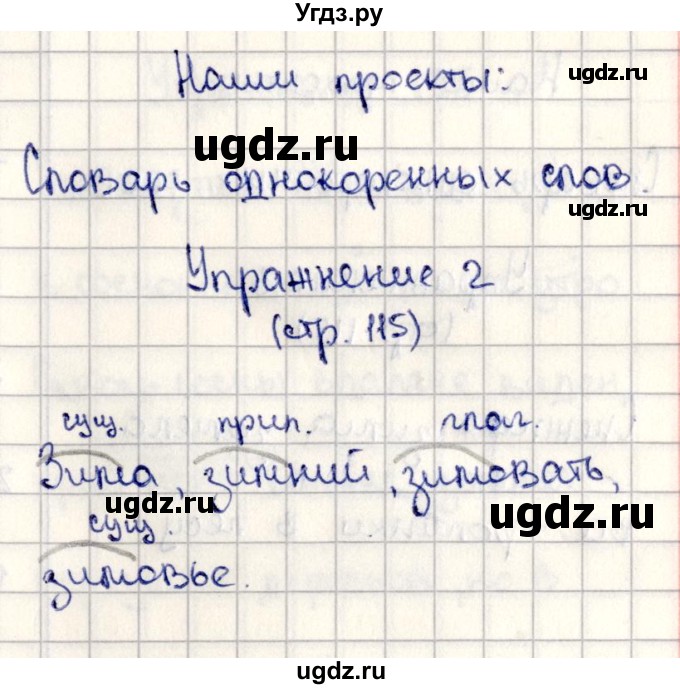 Угдз.ру
Наши проекты:
ugdz.ru
ugdz.ru
Словарь однокоренных слов.
ugdz.ru
Упражнение 2
(стр. 115)
сущ. прил. глаг.
Зима, зимний, зимовать,
ugdz.ru
сущ.
ugdz.ru
зимовье.
ugdz.ru